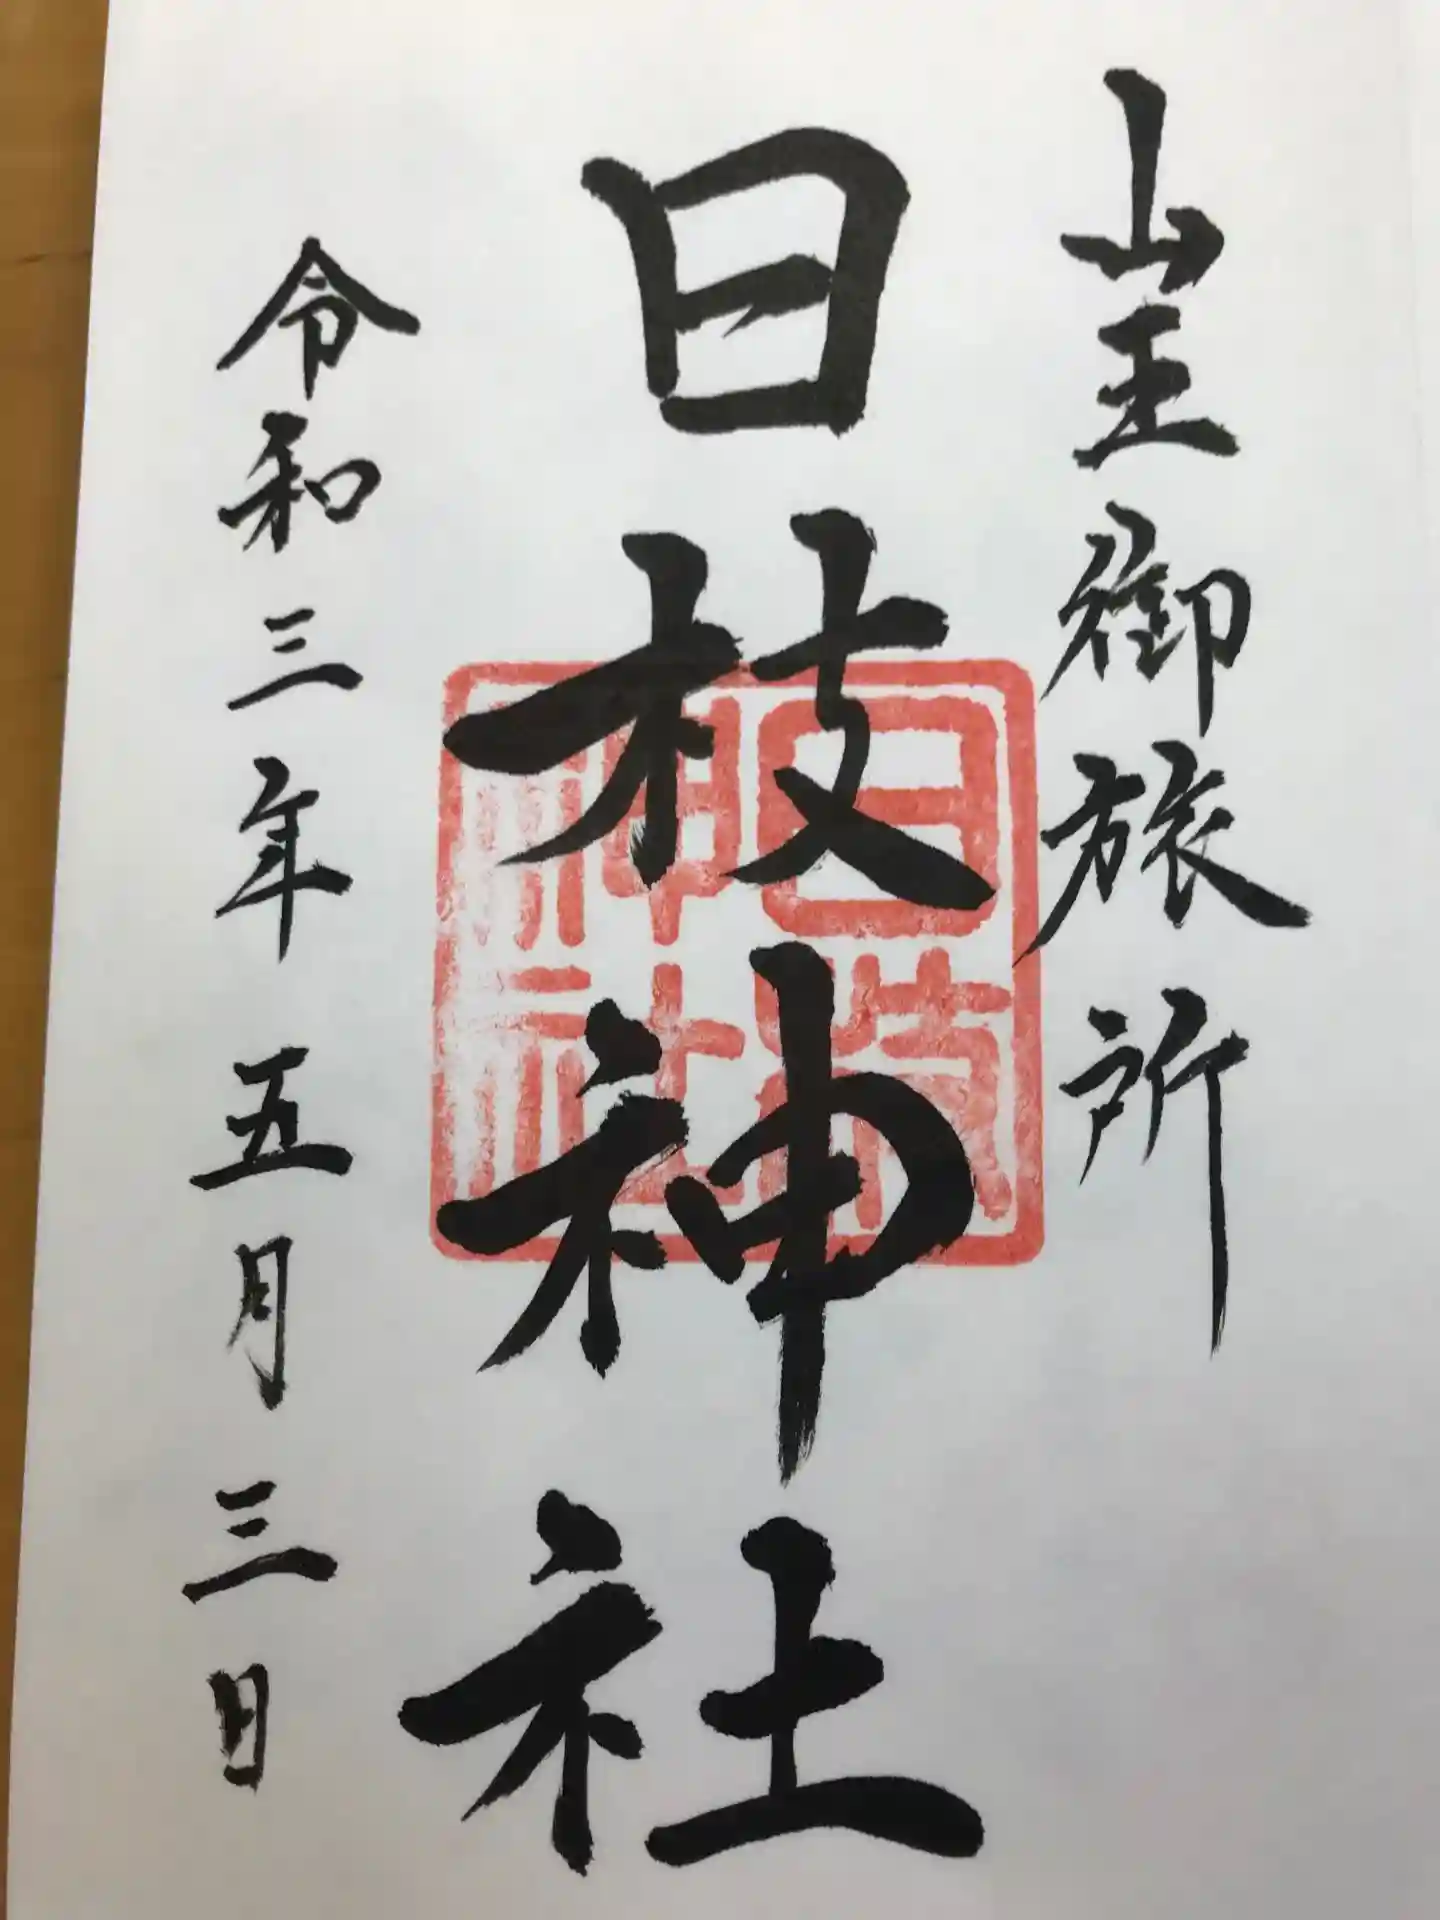 山王御旅所
日枝神社
日枝神社
令和三年五月三日